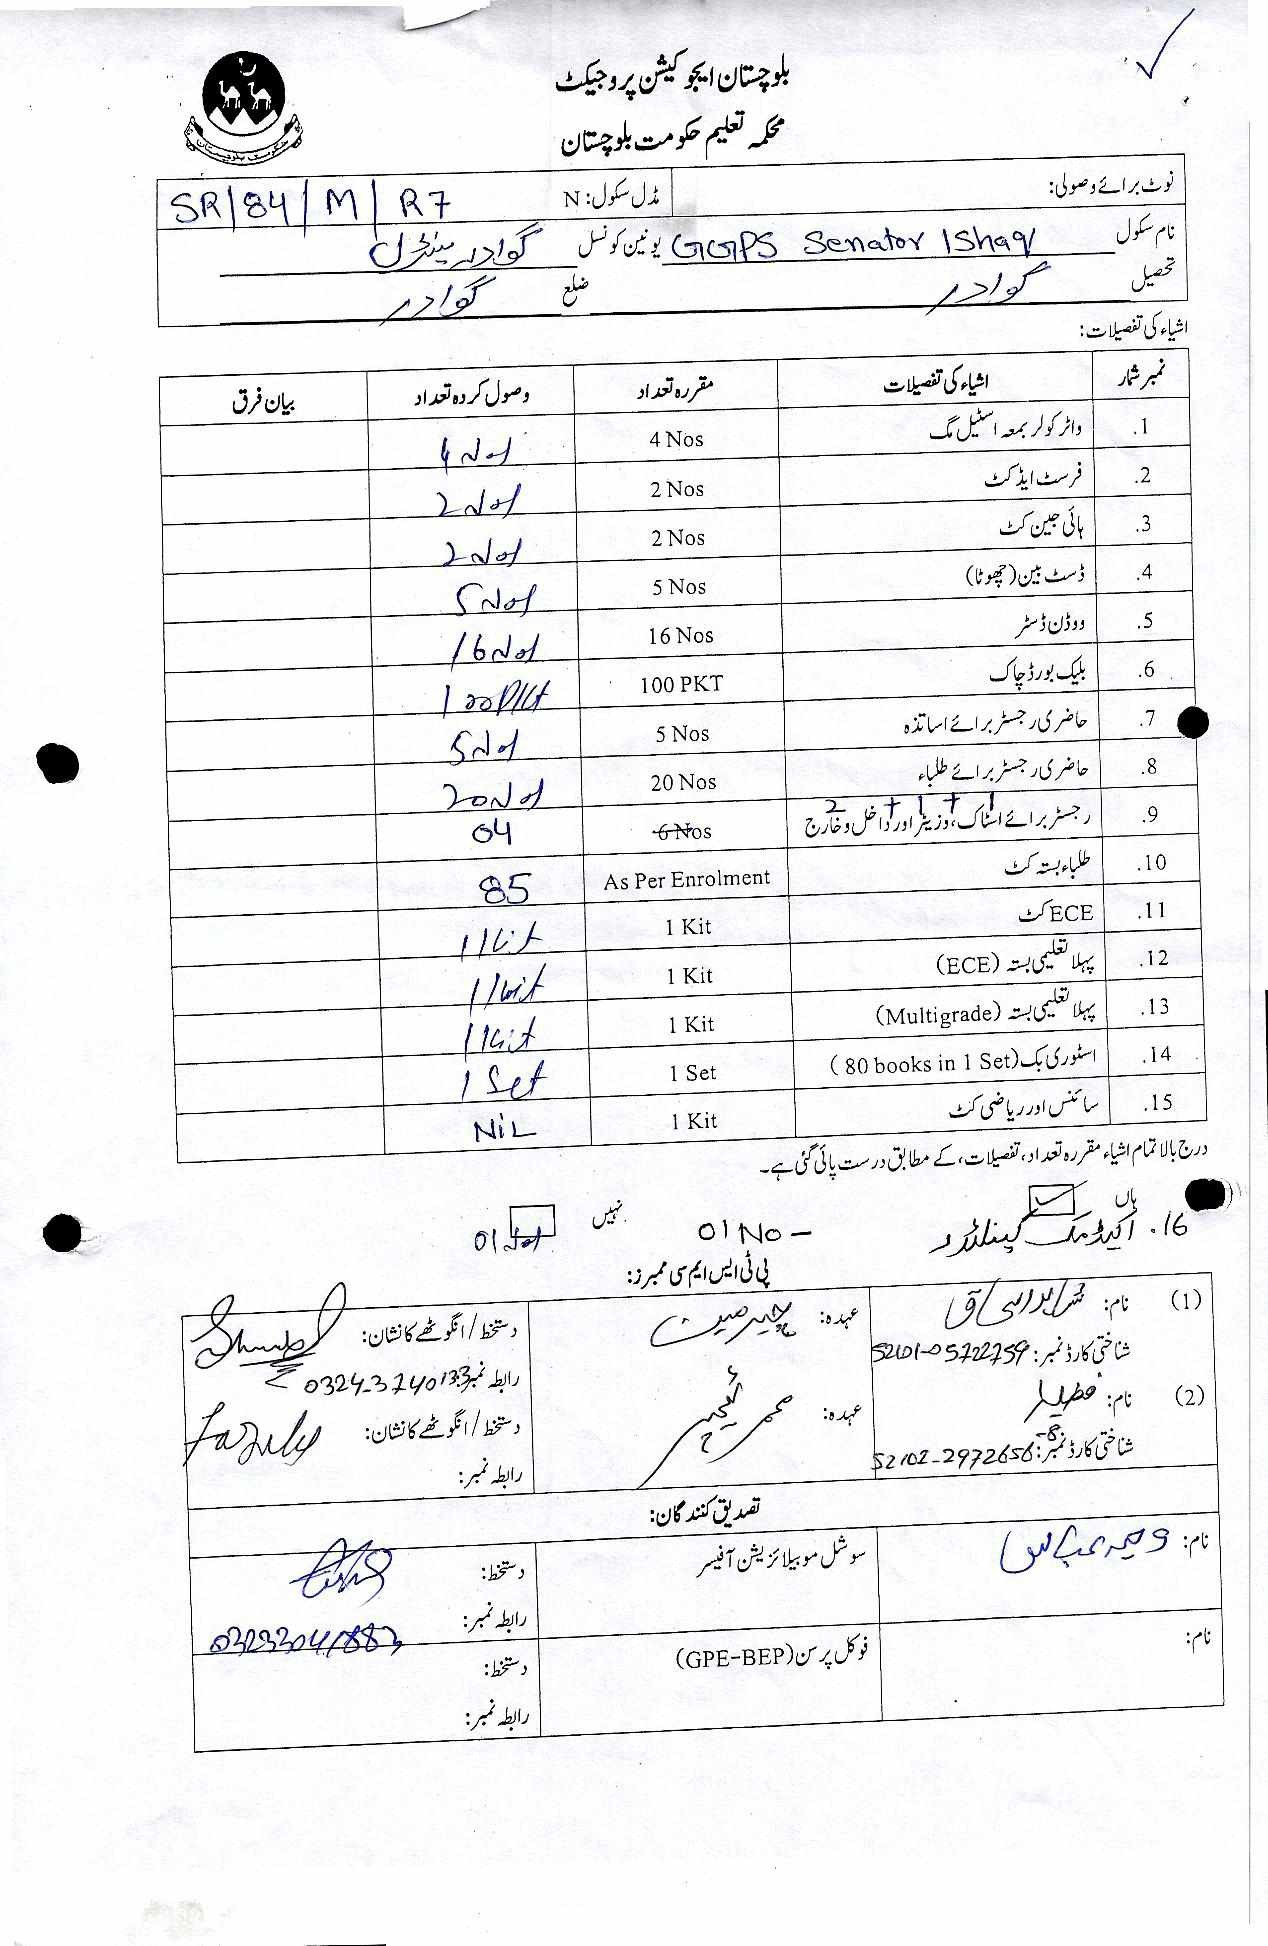 بلوچستان ایجوکیشن پروجیکٹ
محکمہ تعلیم حکومت بلوچستان
حکومت بلوچستان
نوٹ برائے وصولی: مڈل سکول: N SR/84/M/R7
نام سکول GGPS Senator Ishaq یونین کونسل گوادر سینٹرل
تحصیل گوادر ضلع گوادر
اشیاء کی تفصیلات:
نمبر شمار اشیاء کی تفصیلات مقررہ تعداد وصول کردہ تعداد بیان فرق
1. واٹر کولر بمعہ اسٹیل مگ 4 Nos 4 Nos
2. فرسٹ ایڈ کٹ 2 Nos 2 Nos
3. ہائی جین کٹ 2 Nos 2 Nos
4. ڈسٹ بین (چھوٹا) 5 Nos 5 Nos
5. ووڈن ڈسٹر 16 Nos 16 Nos
6. بلیک بورڈ چاک 100 PKT 100 PKT
7. حاضری رجسٹر برائے اساتذہ 5 Nos 5 Nos
8. حاضری رجسٹر برائے طلباء 20 Nos 20 Nos
1 + 1 + 2
9. رجسٹر برائے اسٹاک، وزیٹر اور داخل و خارج 6 Nos 04
10. طلباء بستہ کٹ As Per Enrolment 85
11. ECE کٹ 1 Kit 1 Kit
12. پہلا تعلیمی بستہ (ECE) 1 Kit 1 Kit
13. پہلا تعلیمی بستہ (Multigrade) 1 Kit 1 Kit
14. اسٹوری بک (80 books in 1 Set) 1 Set 1 Set
15. سائنس اور ریاضی کٹ 1 Kit NIL
درج بالا تمام اشیاء مقررہ تعداد، تفصیلات، کے مطابق درست پائی گئی ہے۔
ہاں نہیں
16. اکیڈمک کیلنڈر 01 No – 01 Nos
پی ٹی ایس ایم سی ممبرز:
(1) نام: عہدہ: چیئرمین دستخط / انگوٹھے کا نشان:
شناختی کارڈ نمبر: رابطہ نمبر:
(2) نام: فضیلہ عہدہ: دستخط / انگوٹھے کا نشان: Fazila
شناختی کارڈ نمبر: 52102-2972656-8 رابطہ نمبر:
تصدیق کنندگان:
نام: سوشل موبیلائزیشن آفیسر دستخط:
رابطہ نمبر: 03233041883
نام: فوکل پرسن (GPE-BEP) دستخط:
رابطہ نمبر: